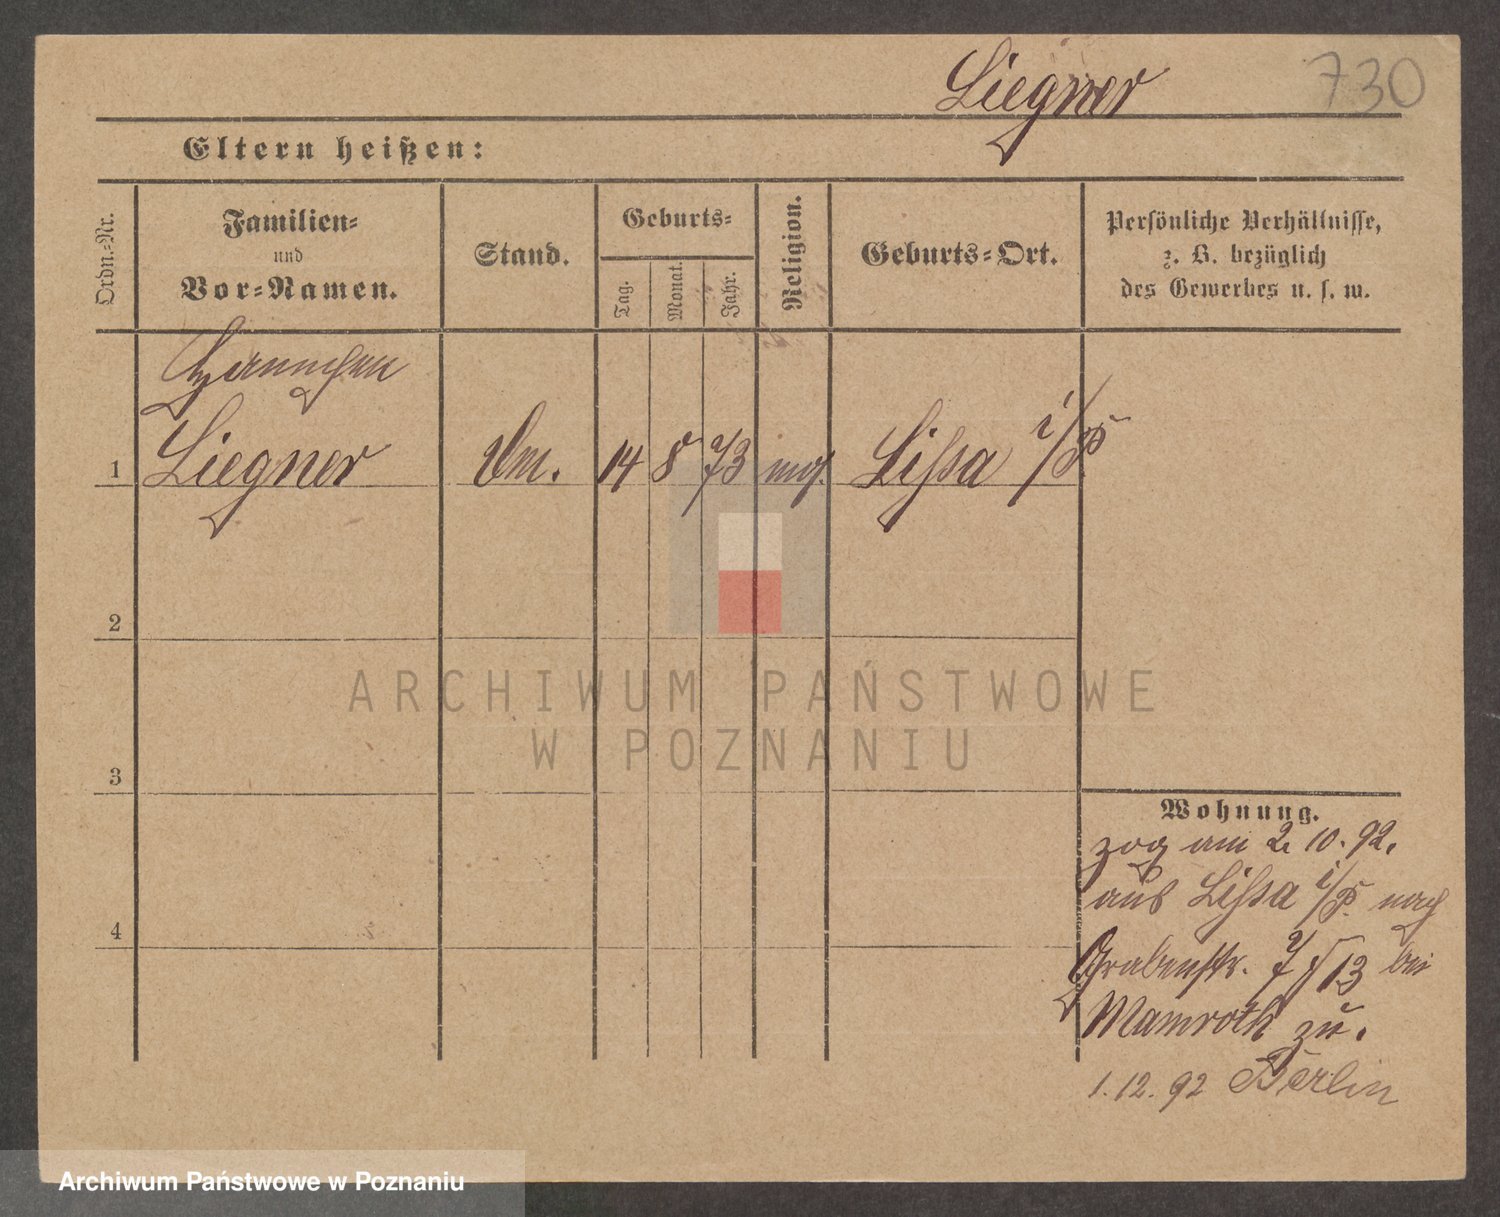 Liegner
730
Eltern heißen:
Ordn.-Nr.
Familien-
und
Vor-Namen.
Stand.
Geburts-
Tag.
Monat.
Jahr.
Religion.
Geburts-Ort.
Persönliche Verhältnisse,
z. B. bezüglich
des Gewerbes u. s. w.
Hannchen
1 Liegner 14 8 73 mos. Lissa i/P.
2
3
4
Wohnung.
zog am 2. 10. 92.
aus Lissa i/P. nach
Grabenstr. bei
Mamroth zu.
1. 12. 92 Berlin
ARCHIWUM PAŃSTWOWE
W POZNANIU
Archiwum Państwowe w Poznaniu